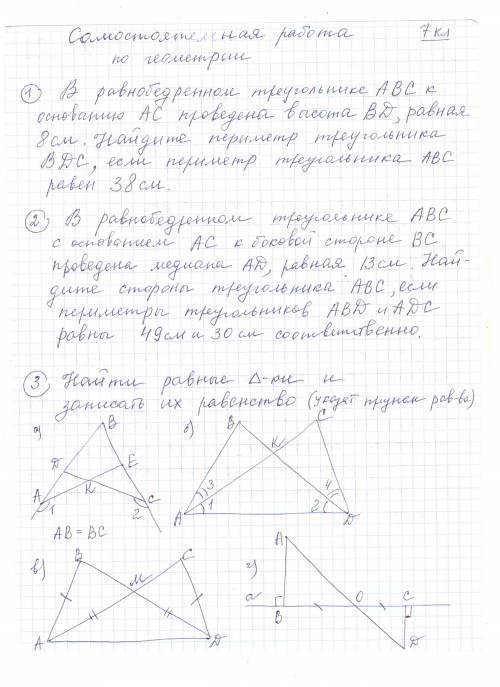 Самостоятельная работа 7 кл
по геометрии
1 В равнобедренном треугольнике ABC к
основанию AC проведена высота BD, равная
8 см. Найдите периметр треугольника
BDC, если периметр треугольника ABC
равен 38 см.
2 В равнобедренном треугольнике ABC
с основанием AC к боковой стороне BC
проведена медиана AD, равная 13 см. Най-
дите стороны треугольника ABC, если
периметры треугольников ABD и ADC
равны 49 см и 30 см соответственно.
3 Найти равные Δ-ки и
записать их равенство (указат призн рав-ва)
а) B D E A K C 1 2
AB = BC
б) B C K A D 3 1 4 2
в) B C M A D
г) A a B O C D